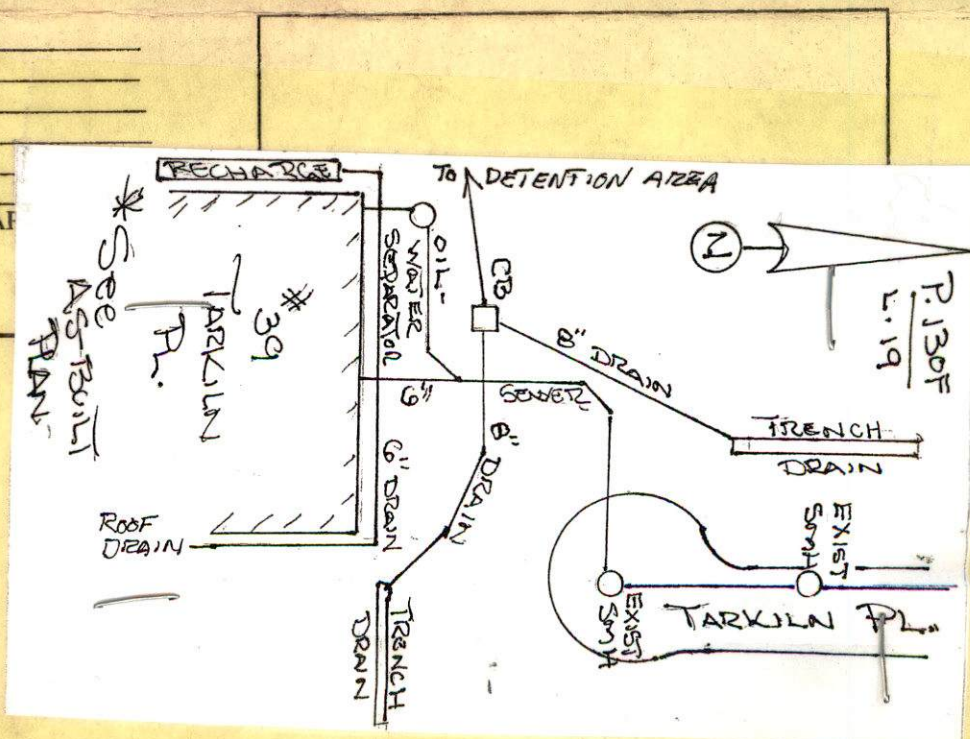 RECHARGE
TO DETENTION AREA
N
P. 130F
L. 19
* See
AS-BUILT
PLAN
#39
TARKILN
PL.
OIL-
WATER
SEPARATOR
CB
8" DRAIN
6"
SEWER
TRENCH
DRAIN
6" DRAIN
DRAIN
ROOF
DRAIN
TRENCH
DRAIN
EXIST
SMH
EXIST
SMH
TARKILN PL.